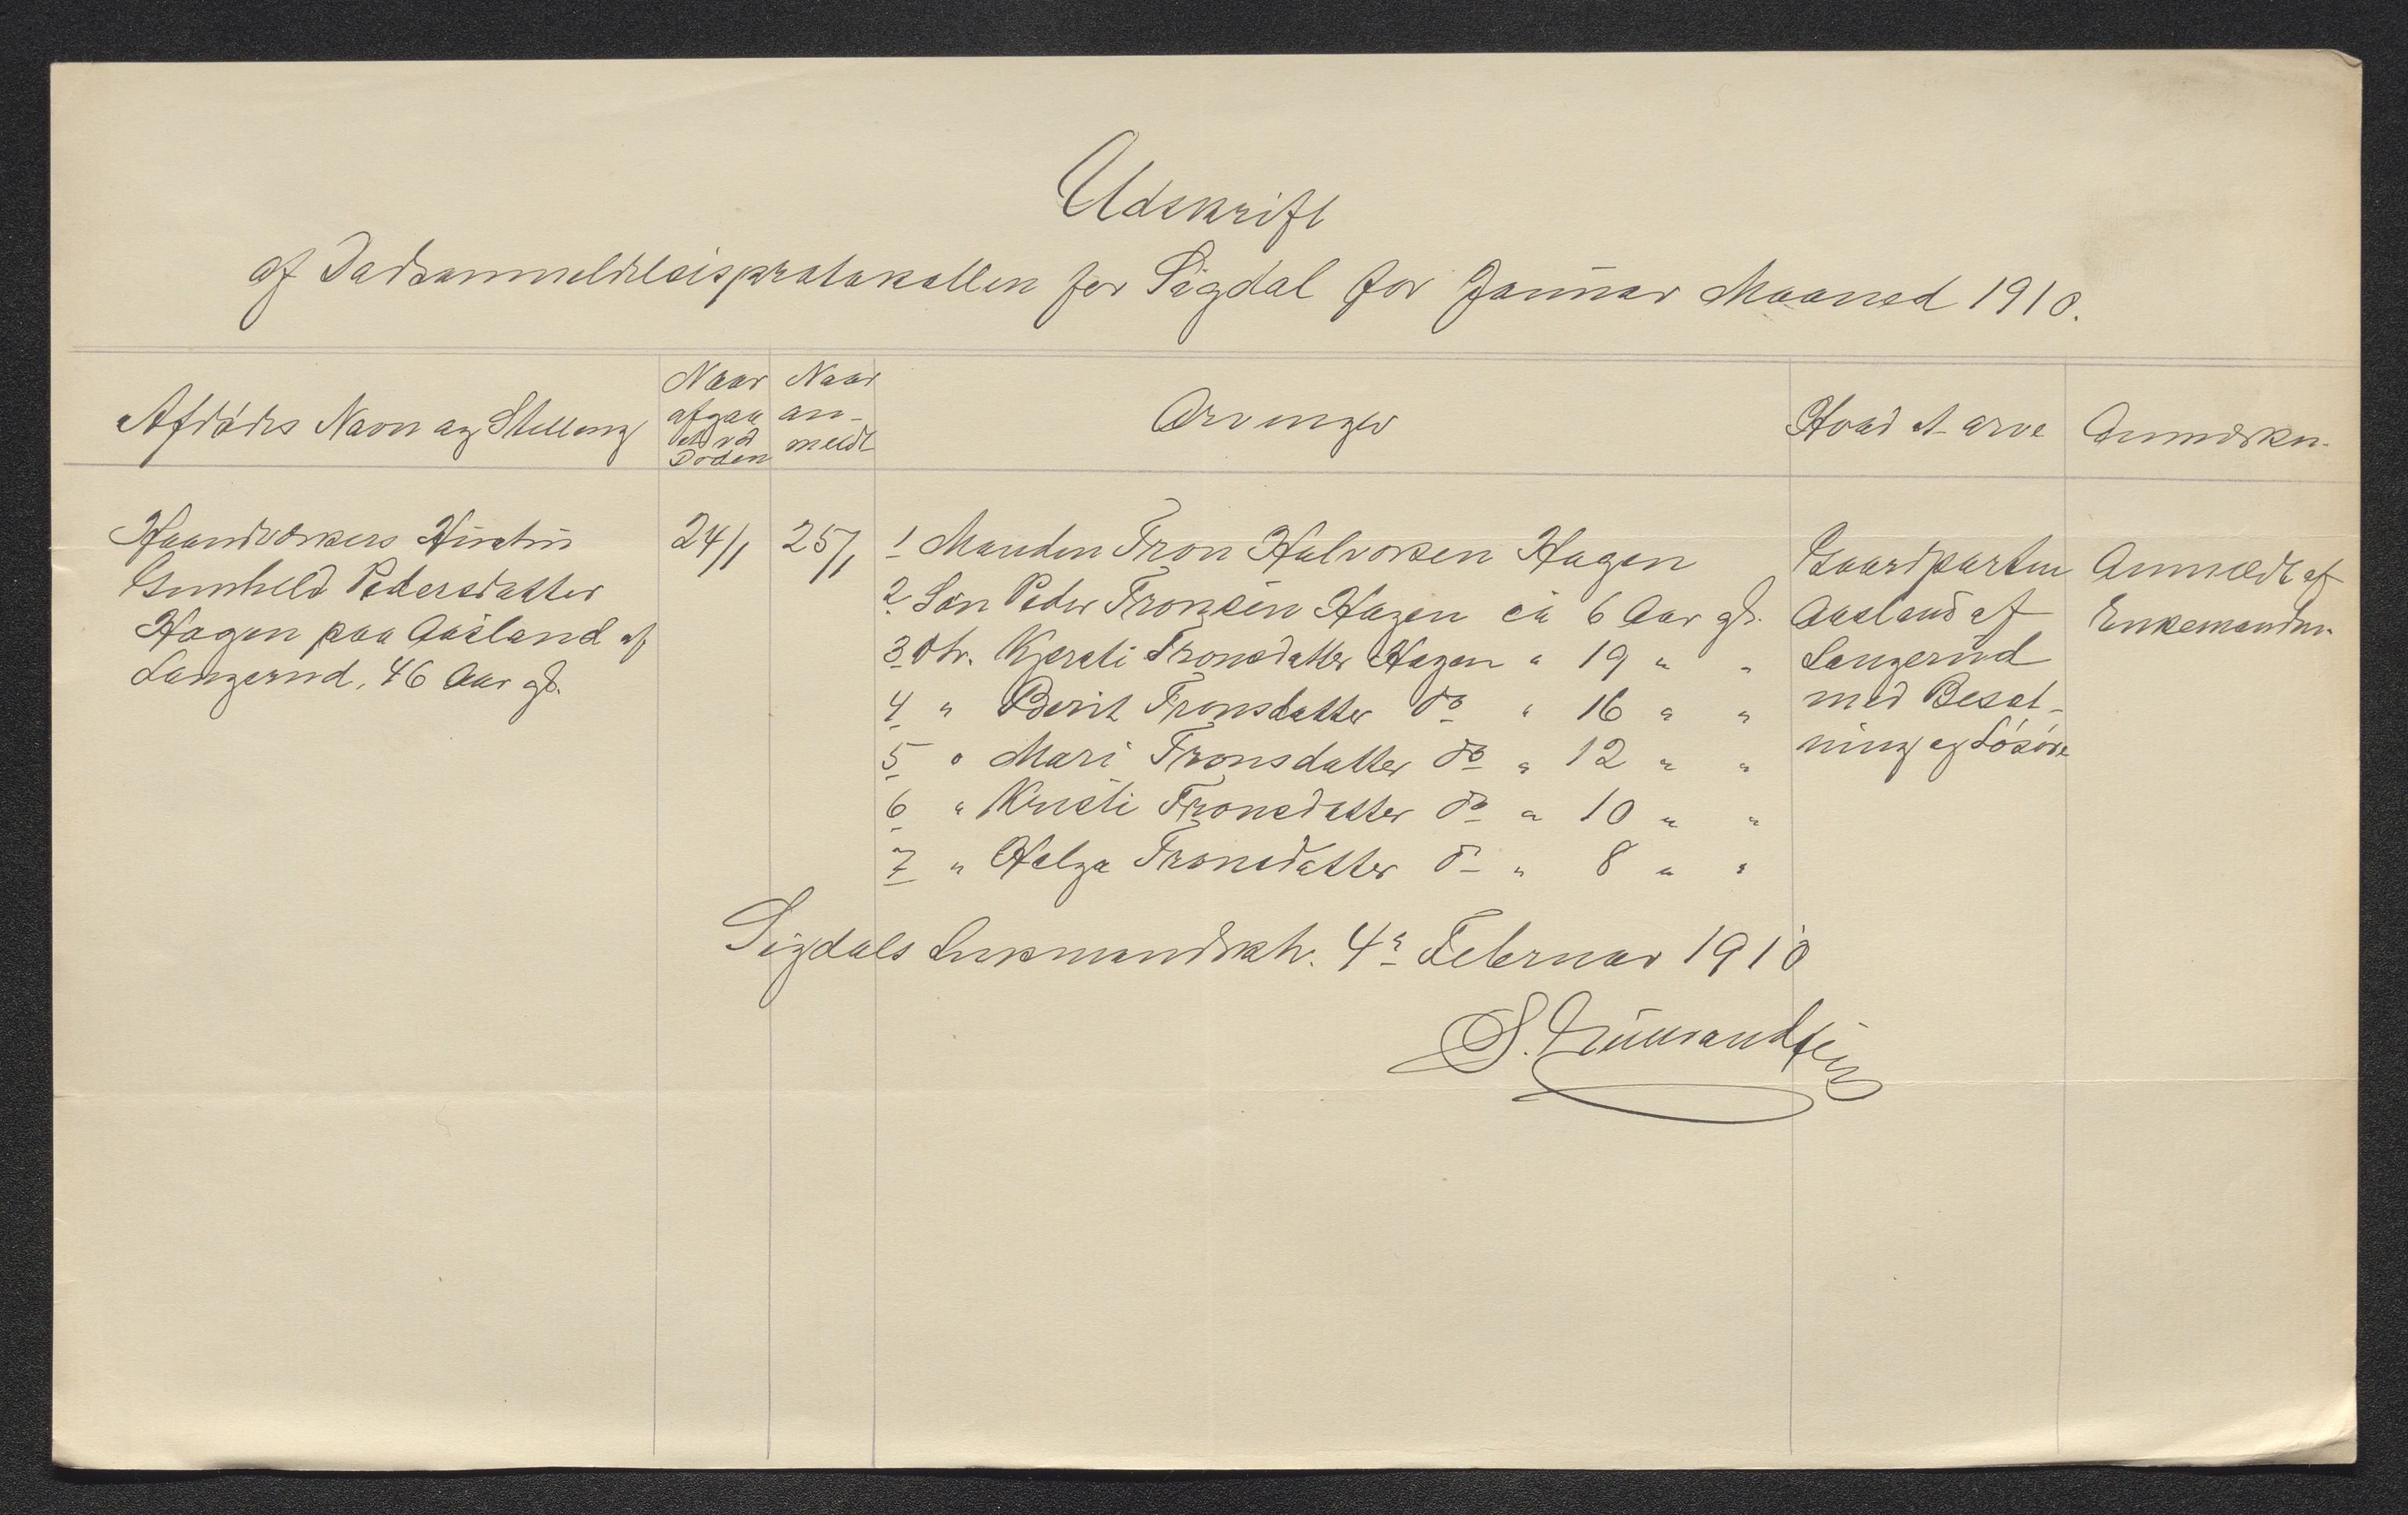 Udskrift
af Dødsanmeldelsisprotokollen for Sigdal for Januar Maaned 1910.
Afdødes Navn og Stilling
Naar
afgaa
et ved
Døden
Naar
an-
meldt
Arvinger
Hvad at arve
Anmærkn.
Haandværkers Hustru
Gunhild Pedersdatter
Hagen paa Aasland af
Langerud, 46 Aar gl.
24/1
25/1
1 Manden Tron Halvorsen Hagen
2 Søn Peder Tronsen Hagen ca 6 Aar gl.
3 Dtr. Kjersti Tronsdatter Hagen " 19 " "
4 " Berit Tronsdatter do " 16 " "
5 " Mari Tronsdatter do " 12 " "
6 " Kristi Tronsdatter do " 10 " "
7 " Helga Tronsdatter do " 8 " "
Gaardparten
Aasland af
Langerud
med Besæt-
ning og Løsøre
Anmeldt af
Enkemanden
Sigdals Lensmandsktr. 4de Februar 1910
S.